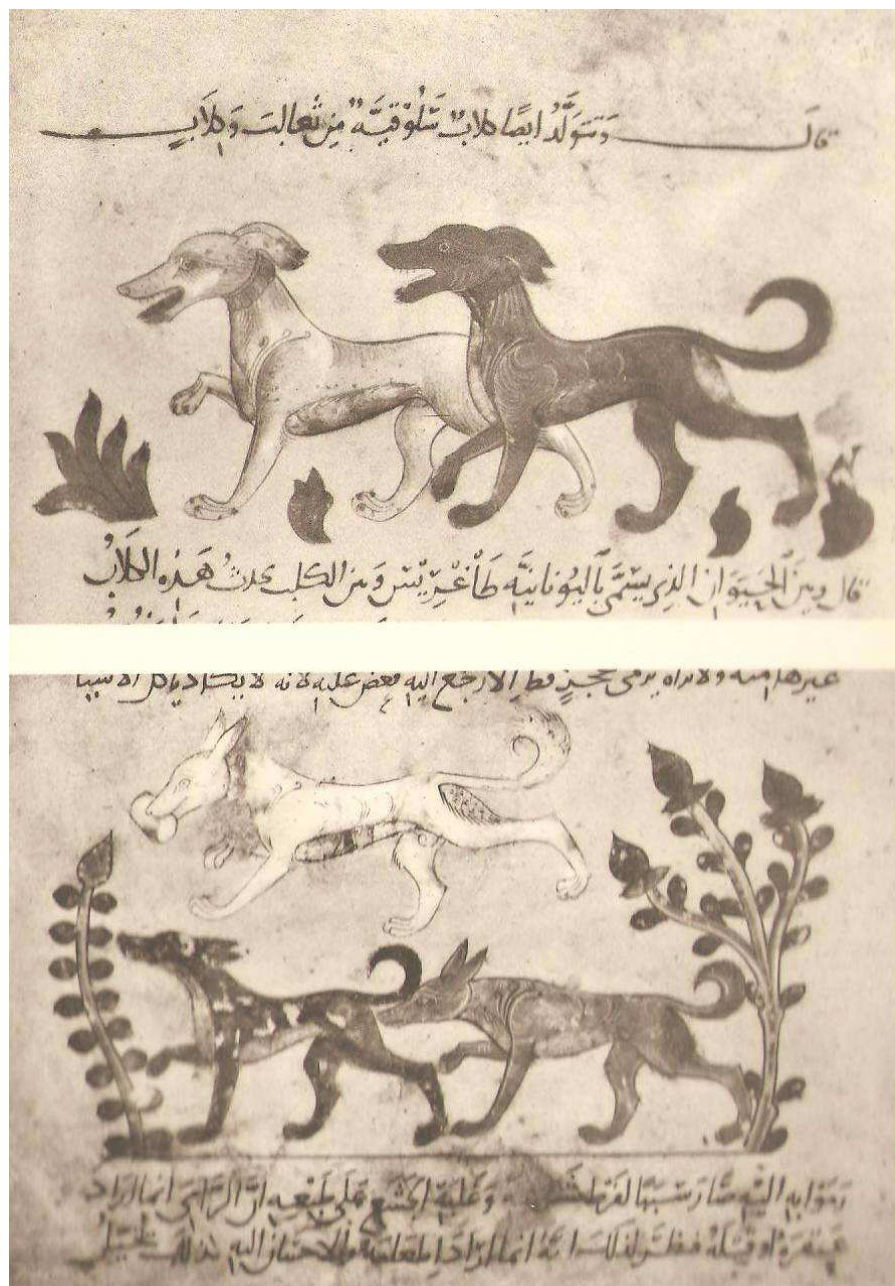 قال وَتتَوَلَّدُ ايضًا كلابٌ سَلُوْقِيَّه مِن ثعالبَ وَكلابٍ
قال ومِنَ الحَيَوَان الذِي يسَمَّى بِاليُونَانيَّه طَاغْرِيْس وَمِن الكلب تحدثُ هَذِه الكلابُ
غيرها منه ولا تراه يرمى بحجرٍ قط الا رجع اليه فعض عليه لانه لا يكاد ياكل الا شيئا
رموا به اليه صار سببا لفرط وغلبة الجشع على طبعه ان الرامى انما اراد
عقره او قتله فظن لذلك انه انما اراد اطعامه والاحسان اليه بذلك